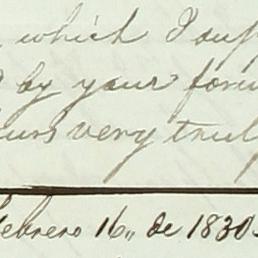 which I sup
by your form
urs very trul
ebrero 16,, de 1830